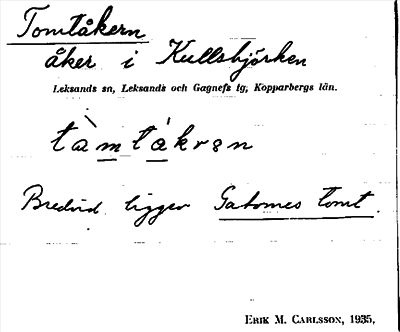 Tomtåkern
åker i Kullsbjörken
Leksands sn, Leksands och Gagnefs tg, Kopparbergs län.
tὰmtákrən
Bredvid ligger Gatomes tomt.
ERIK M. CARLSSON, 1935.